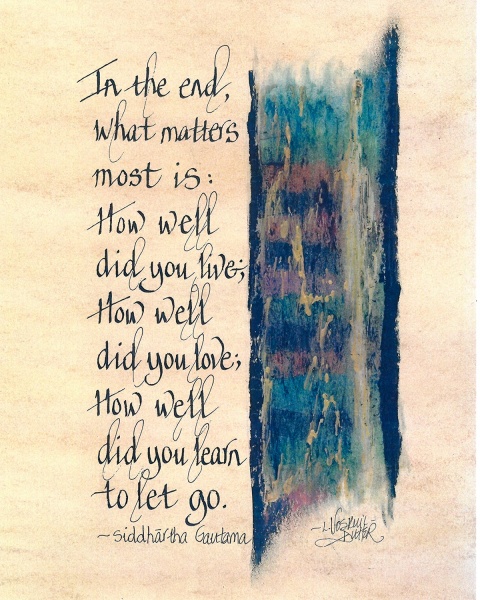 In the end,
what matters
most is:
How well
did you live;
How well
did you love;
How well
did you learn
to let go.
~Siddhārtha Gautama